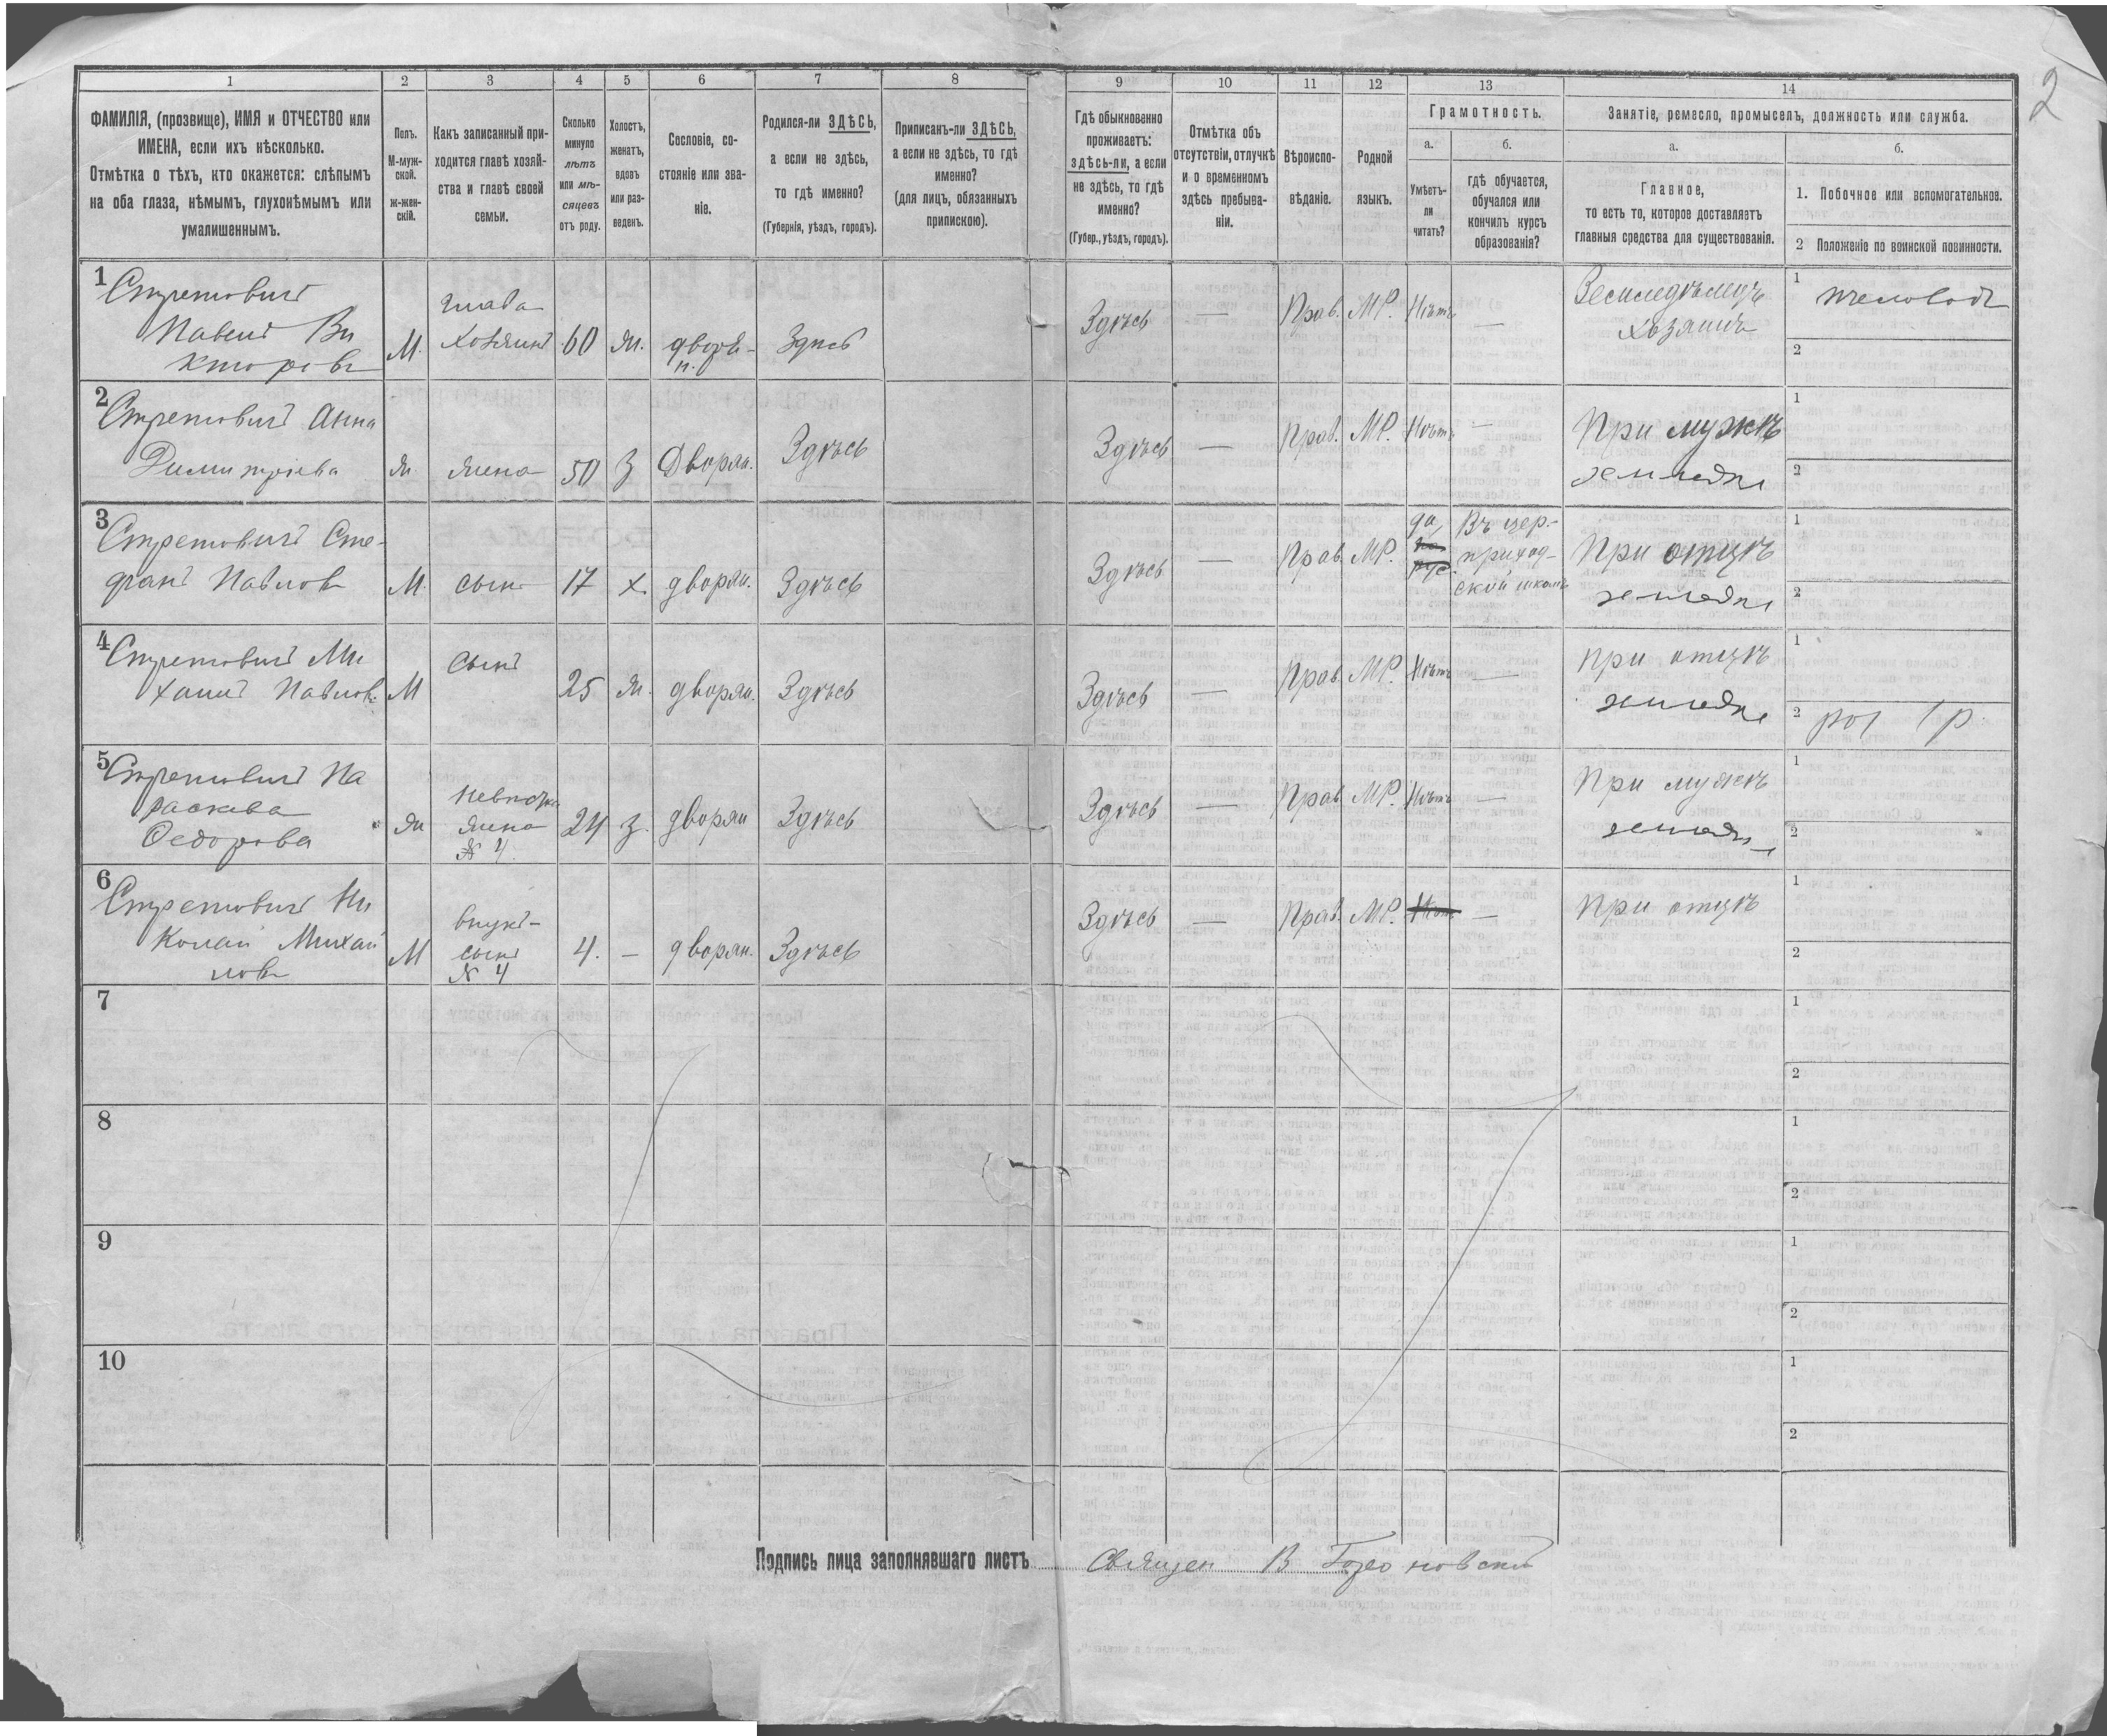 2
1 2 3 4 5 6 7 8 9 10 11 12 13 14
ФАМИЛІЯ, (прозвище), ИМЯ и ОТЧЕСТВО или
ИМЕНА, если ихъ нѣсколько.
Отмѣтка о тѣхъ, кто окажется: слѣпымъ
на оба глаза, нѣмымъ, глухонѣмымъ или
умалишеннымъ.
Полъ.
М-муж-
ской.
ж-жен-
скій.
Какъ записанный при-
ходится главѣ хозяй-
ства и главѣ своей
семьи.
Сколько
минуло
лѣтъ
или мѣ-
сяцевъ
отъ роду.
Холостъ,
женатъ,
вдовъ
или раз-
веденъ.
Сословіе, со-
стояніе или зва-
ніе.
Родился-ли ЗДѢСЬ,
а если не здѣсь,
то гдѣ именно?
(Губернія, уѣздъ, городъ).
Приписанъ-ли ЗДѢСЬ,
а если не здѣсь, то гдѣ
именно?
(для лицъ, обязанныхъ
припискою).
Гдѣ обыкновенно
проживаетъ:
здѣсь-ли, а если
не здѣсь, то гдѣ
именно?
(Губер., уѣздъ, городъ).
Отмѣтка объ
отсутствіи, отлучкѣ
и о временномъ
здѣсь пребыва-
ніи.
Вѣроиспо-
вѣданіе.
Родной
языкъ.
Грамотность.
а.
Умѣетъ-
ли
читать?
б.
гдѣ обучается,
обучался или
кончилъ курсъ
образованія?
Занятіе, ремесло, промыселъ, должность или служба.
а.
Главное,
то есть то, которое доставляетъ
главныя средства для существованія.
б.
1. Побочное или вспомогательное.
2 Положеніе по воинской повинности.
1
Стретовичъ
Павелъ Ви
кторовъ
М.
глава
Хозяинъ
60
ж.
дворя-
н.
Здѣсь
Здѣсь
—
Прав.
МР.
Нѣтъ
—
Земледѣлецъ
хозяинъ
1 пчеловодъ
2
2
Стретовичъ Анна
Димитріева
ж.
жена
50
З
Дворян.
Здѣсь
Здѣсь
—
Прав.
МР.
Нѣтъ
—
При мужѣ
1
2
3
Стретовичъ Сте-
фанъ Павловъ
М.
сынъ
17
х.
дворян.
Здѣсь
Здѣсь
—
Прав.
МР.
да,
рус.
Въ цер.-
приход-
ской школѣ
При отцѣ
1
2
4
Стретовичъ Ми
хаилъ Павловъ
М
Сынъ
25
ж.
дворян.
Здѣсь
Здѣсь
—
Прав.
МР.
Нѣтъ
—
при отцѣ
1
2
5
Стретовичъ Па
раскева
Ѳедорова
ж
невѣстка
жена
№ 4.
24
з.
дворян
Здѣсь
Здѣсь
—
Прав.
МР.
Нѣтъ
—
При мужѣ
1
2
6
Стретовичъ Ни
колай Михай
ловъ
М
внукъ-
сынъ
№ 4
4.
—
дворян.
Здѣсь
Здѣсь
—
Прав.
МР.
Нѣтъ
—
При отцѣ
1
2
7
1
2
8
1
2
9
1
2
10
1
2
Подпись лица заполнявшаго листъ
Священ В